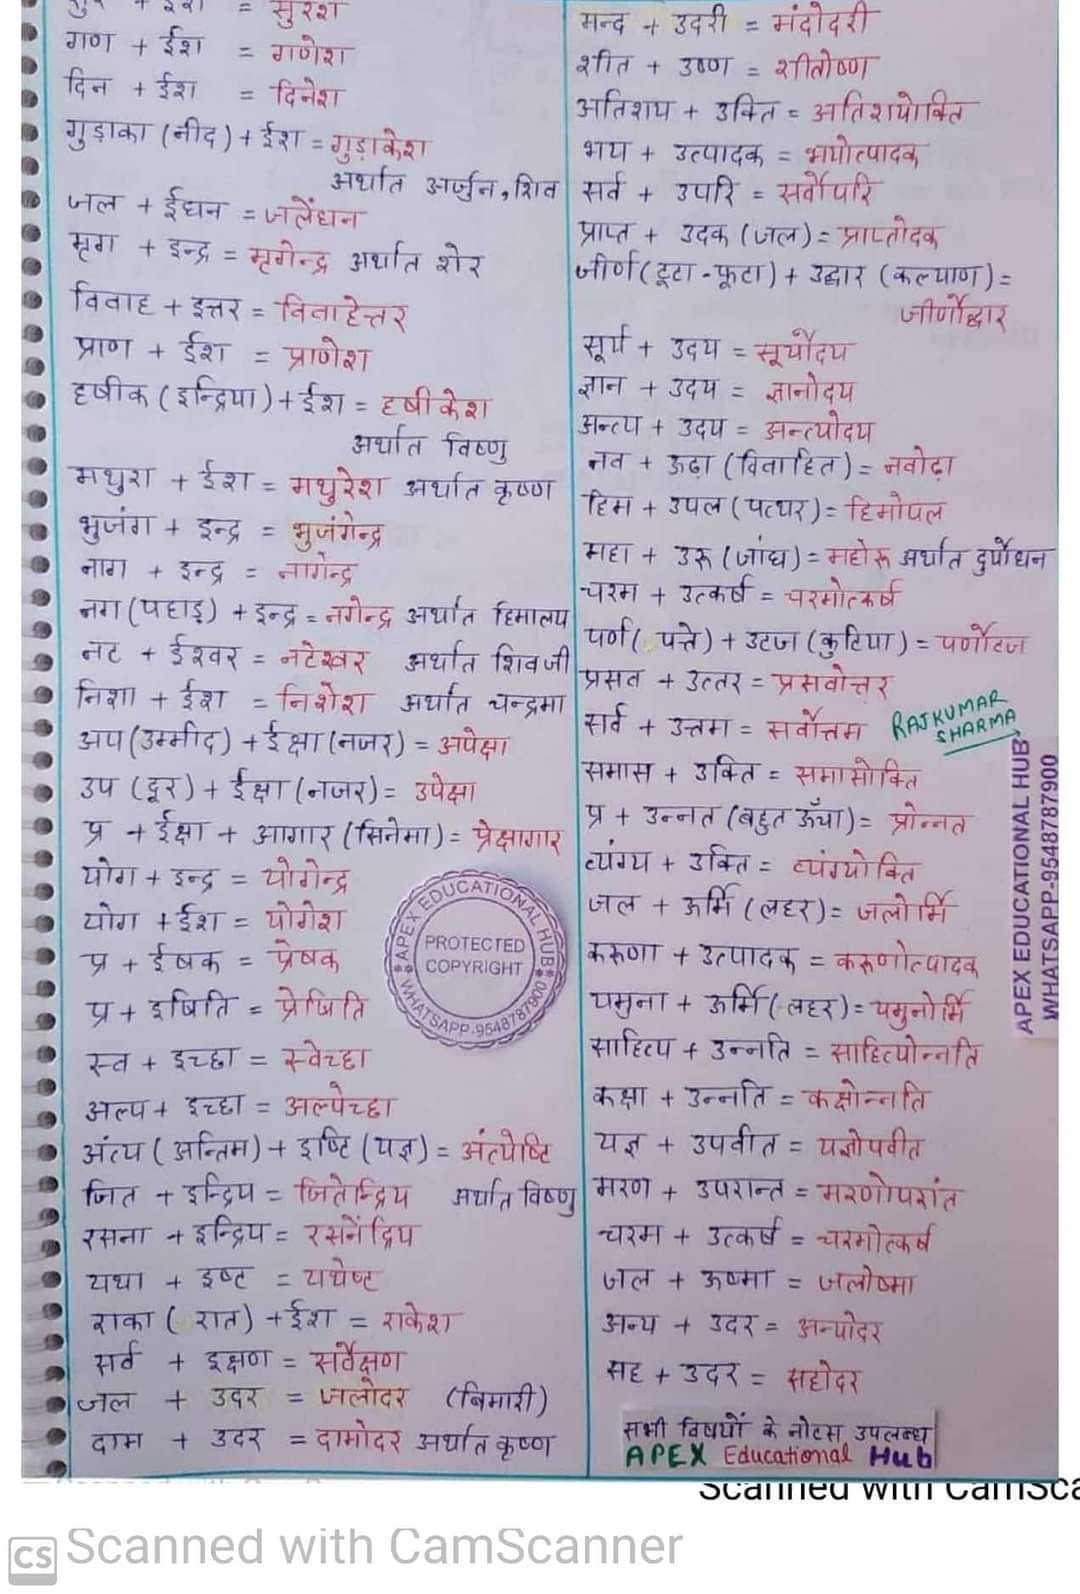 सुर + ईश = सुरेश
गण + ईश = गणेश
दिन + ईश = दिनेश
गुड़ाका (नीद) + ईश = गुड़ाकेश
अर्थात अर्जुन, शिव
जल + ईंधन = जलेंधन
मृग + इन्द्र = मृगेन्द्र अर्थात शेर
विवाह + इत्तर = विवाहेत्तर
प्राण + ईश = प्राणेश
हृषीक (इन्द्रिया) + ईश = हृषीकेश
अर्थात विष्णु
मथुरा + ईश = मथुरेश अर्थात कृष्ण
भुजंग + इन्द्र = भुजंगेन्द्र
नाग + इन्द्र = नागेन्द्र
नग (पहाड़) + इन्द्र = नगेन्द्र अर्थात हिमालय
नट + ईश्वर = नटेश्वर अर्थात शिवजी
निशा + ईश = निशेश अर्थात चन्द्रमा
अप (उम्मीद) + ईक्षा (नजर) = अपेक्षा
उप (दूर) + ईक्षा (नजर) = उपेक्षा
प्र + ईक्षा + आगार (सिनेमा) = प्रेक्षागार
योग + इन्द्र = योगेन्द्र
योग + ईश = योगेश
प्र + ईषक = प्रेषक
प्र + इषिति = प्रेषिति
स्व + इच्छा = स्वेच्छा
अल्प + इच्छा = अल्पेच्छा
अंत्य (अन्तिम) + इष्टि (यज्ञ) = अंत्येष्टि
जित + इन्द्रिय = जितेन्द्रिय अर्थात विष्णु
रसना + इन्द्रिय = रसनेंद्रिय
यथा + इष्ट = यथेष्ट
राका (रात) + ईश = राकेश
सर्व + इक्षण = सर्वेक्षण
जल + उदर = जलोदर (बिमारी)
दाम + उदर = दामोदर अर्थात कृष्ण
मन्द + उदरी = मंदोदरी
शीत + उष्ण = शीतोष्ण
अतिशय + उक्ति = अतिशयोक्ति
भय + उत्पादक = भयोत्पादक
सर्व + उपरि = सर्वोपरि
प्राप्त + उदक (जल) = प्राप्तोदक
जीर्ण (टूटा-फूटा) + उद्धार (कल्याण) =
जीर्णोद्धार
सूर्य + उदय = सूर्योदय
ज्ञान + उदय = ज्ञानोदय
अन्त्य + उदय = अन्त्योदय
नव + ऊढ़ा (विवाहित) = नवोढ़ा
हिम + उपल (पत्थर) = हिमोपल
महा + उरू (जांघ) = महोरू अर्थात दुर्योधन
चरम + उत्कर्ष = चरमोत्कर्ष
पर्ण (पत्ते) + उटज (कुटिया) = पर्णोटज
प्रसव + उत्तर = प्रसवोत्तर
सर्व + उत्तम = सर्वोत्तम
RAJKUMAR
SHARMA
समास + उक्ति = समासोक्ति
प्र + उन्नत (बहुत ऊँचा) = प्रोन्नत
व्यंग्य + उक्ति = व्यंग्योक्ति
जल + ऊर्मि (लहर) = जलोर्मि
करूणा + उत्पादक = करूणोत्पादक
यमुना + ऊर्मि (लहर) = यमुनोर्मि
साहित्य + उन्नति = साहित्योन्नति
कक्षा + उन्नति = कक्षोन्नति
यज्ञ + उपवीत = यज्ञोपवीत
मरण + उपरान्त = मरणोपरांत
चरम + उत्कर्ष = चरमोत्कर्ष
जल + ऊष्मा = जलोष्मा
अन्य + उदर = अन्योदर
सह + उदर = सहोदर
सभी विषयों के नोटस उपलब्ध
APEX Educational Hub
APEX EDUCATIONAL HUB
PROTECTED
COPYRIGHT
WHATSAPP-9548787900
APEX EDUCATIONAL HUB
WHATSAPP-9548787900
Scanned with CamSca
CS Scanned with CamScanner